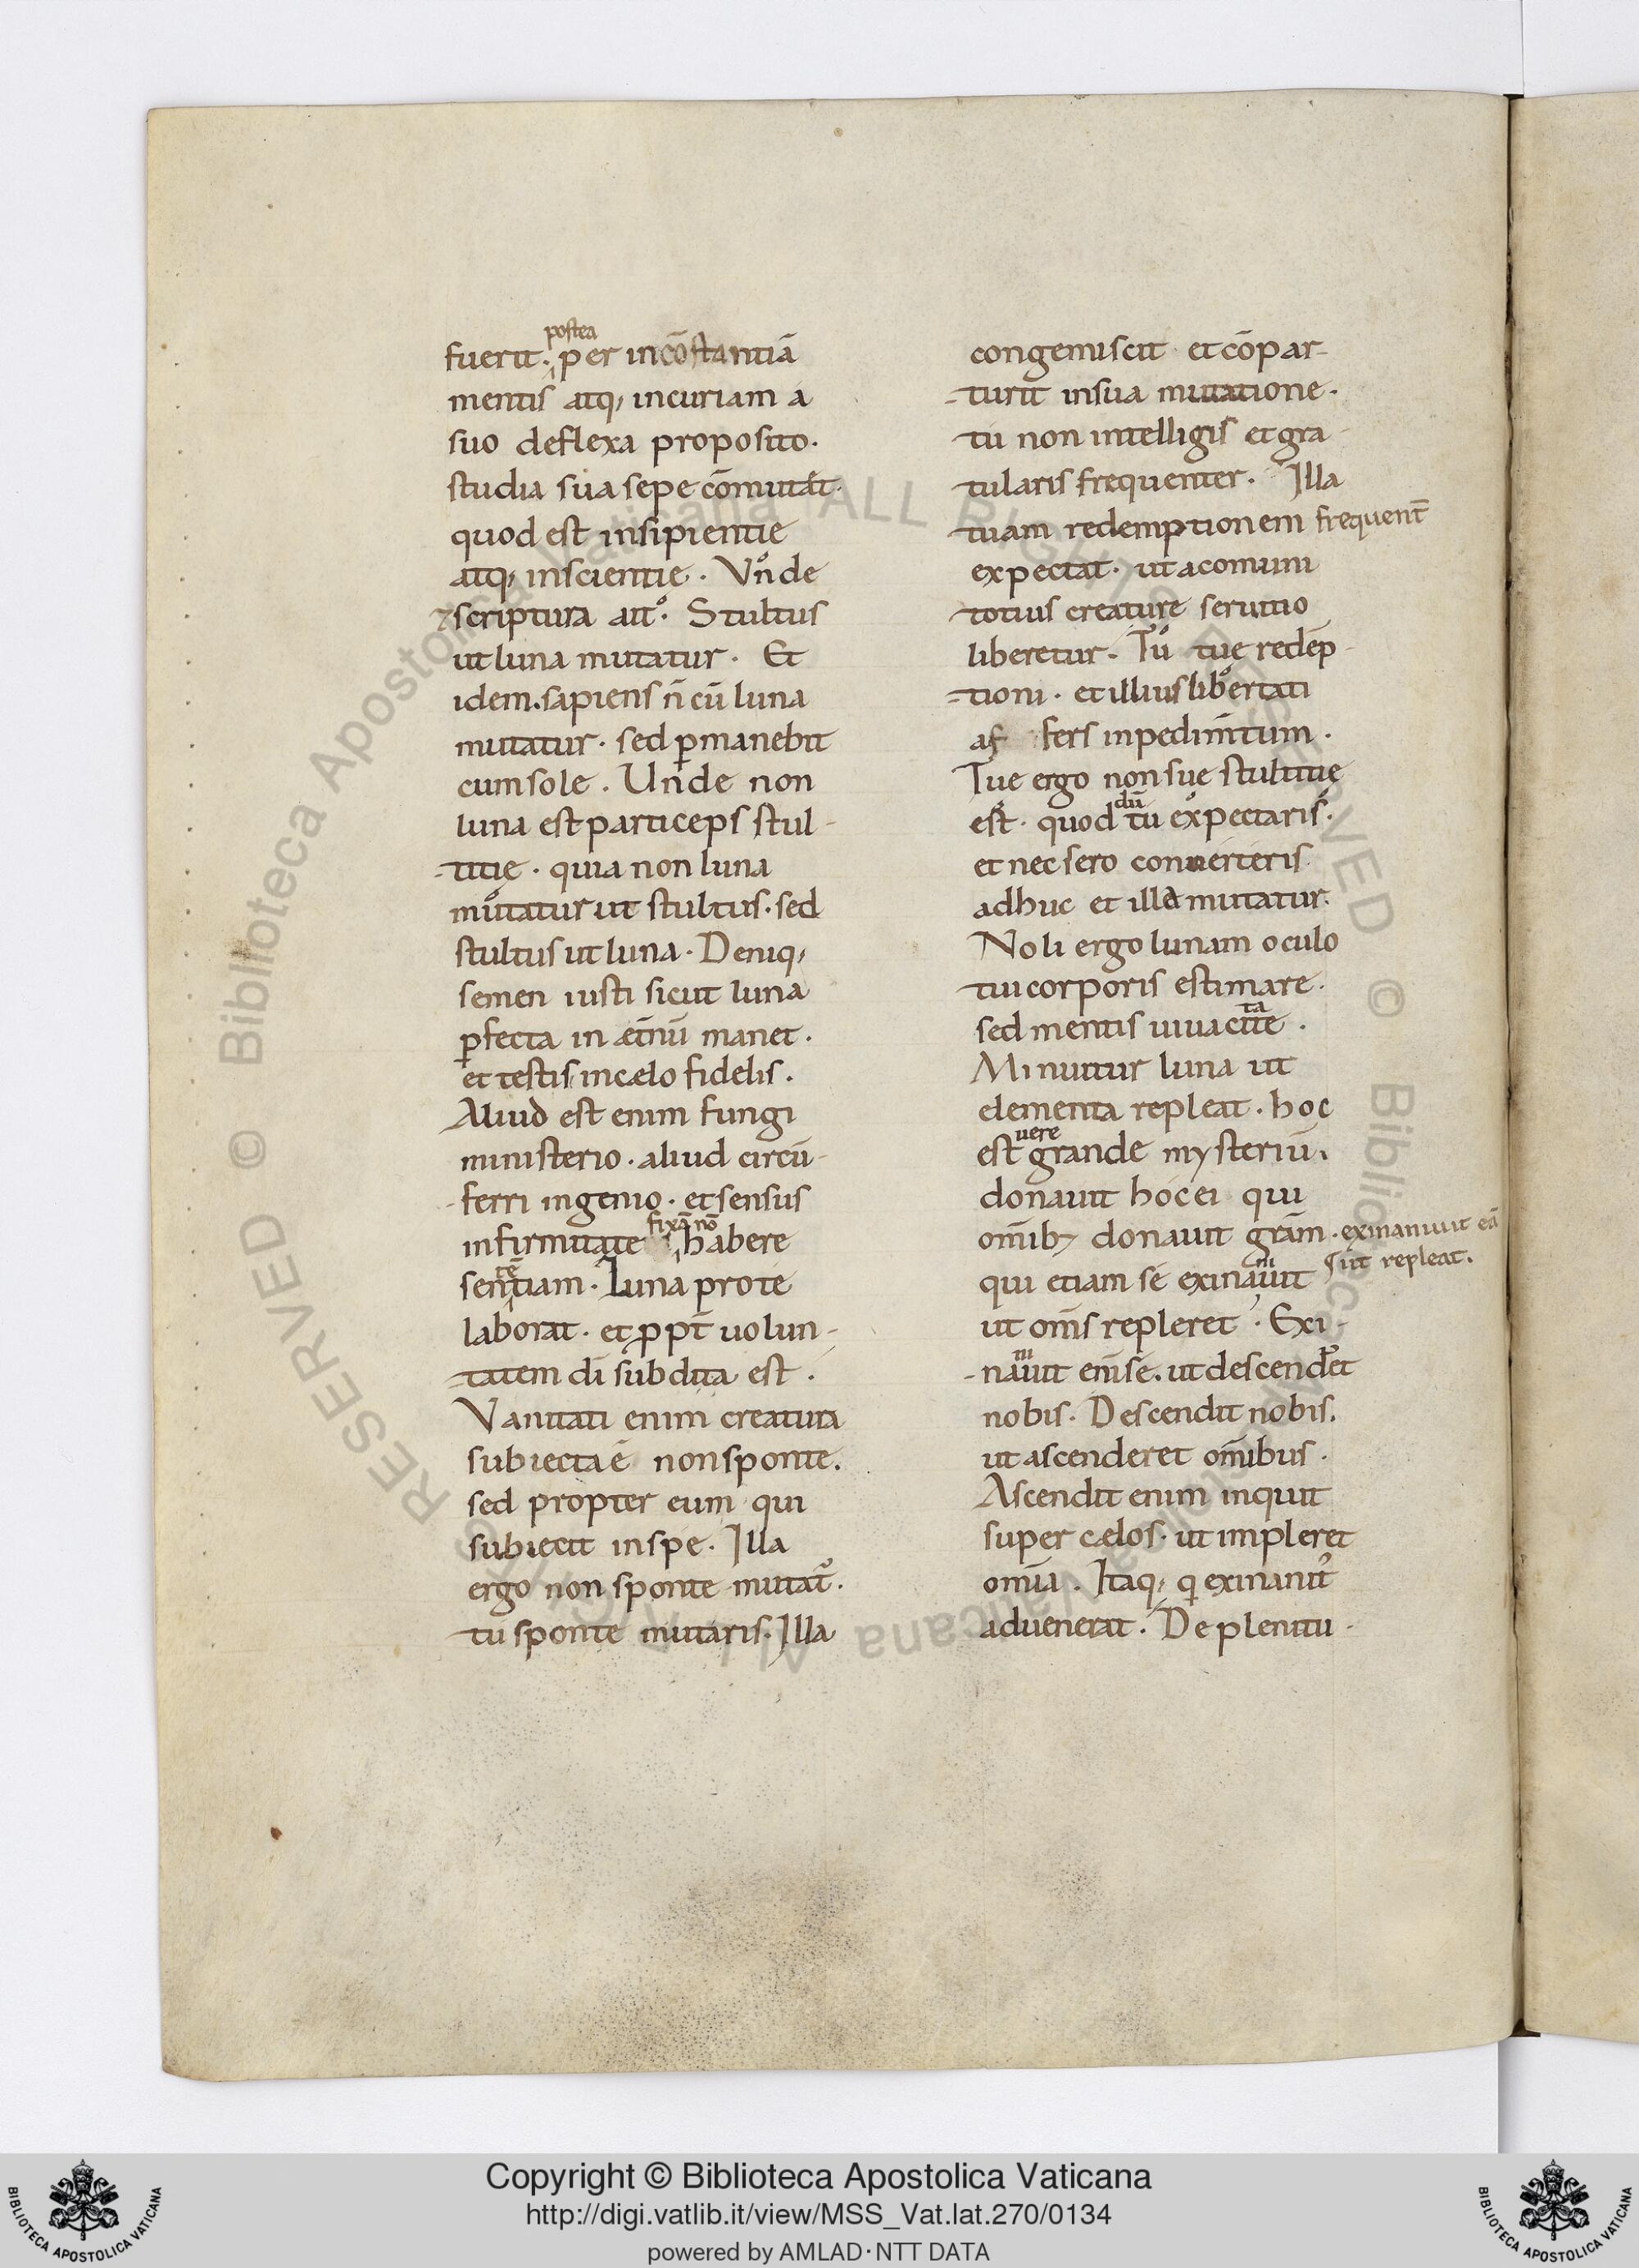 postea
fuerit. per incōstantiā
mentis atq; incuriam a
suo deflexa proposito.
studia sua sepe cōmutat.
quod est insipientie
atq; inscientie. Vnde
⁊ scriptura ait. Stultus
ut luna mutatur. Et
idem. sapiens n̄ cū luna
mutatur. sed ꝑmanebit
cum sole. Unde non
luna est particeps stul-
-titię. quia non luna
mutatur ut stultus. sed
stultus ut luna. Deniq;
semen iusti sicut luna
ꝑfecta in æt̄nū manet.
et testis in cælo fidelis.
Aliud est enim fungi
ministerio. aliud circū-
-ferri ingenio. et sensus
fixā nō
infirmitate habere
tē
sentiam. Luna pro te
laborat. et ꝓpt̄ uolun-
-tatem di subdita est.
Vanitati enim creatura
subiecta ē non sponte.
sed propter eum qui
subiecit in spe. Illa
ergo non sponte mutat̄.
tu sponte mutaris. Illa
congemiscit et cōpar-
-turit in sua mutatione.
tu non intelligis et gra-
tularis frequenter. Illa
tuam redemptionem frequent̄
expectat. ut a comuni
totius creature seruitio
liberetur. Tu tuę redēp-
-tioni. et illius libertati
af fers inpedim̄tum.
Tue ergo non sue stultitię
dū
est. quod tu expectaris.
et nec sero conuerteris
adhuc et illa mutatur.
Noli ergo lunam oculo
tui corporis estimare.
ta
sed mentis uiuacite.
Minuitur luna ut
elementa repleat. hoc
uere
est grande mysteriū.
donauit hoc ei qui
om̄ib; donauit grām. exinaniuit eā
ut repleat.
ni
qui etiam se exinauit
ut om̄s repleret. Exi-
ni
-nauit eni se. ut descendet
nobis. Descendit nobis.
ut ascenderet om̄ibus.
Ascendit enim inquit
super cælos. ut impleret
omīa. Itaq; q exinanit
aduenerat. De plenitu-
Copyright © Biblioteca Apostolica Vaticana
http://digi.vatlib.it/view/MSS_Vat.lat.270/0134
powered by AMLAD·NTT DATA